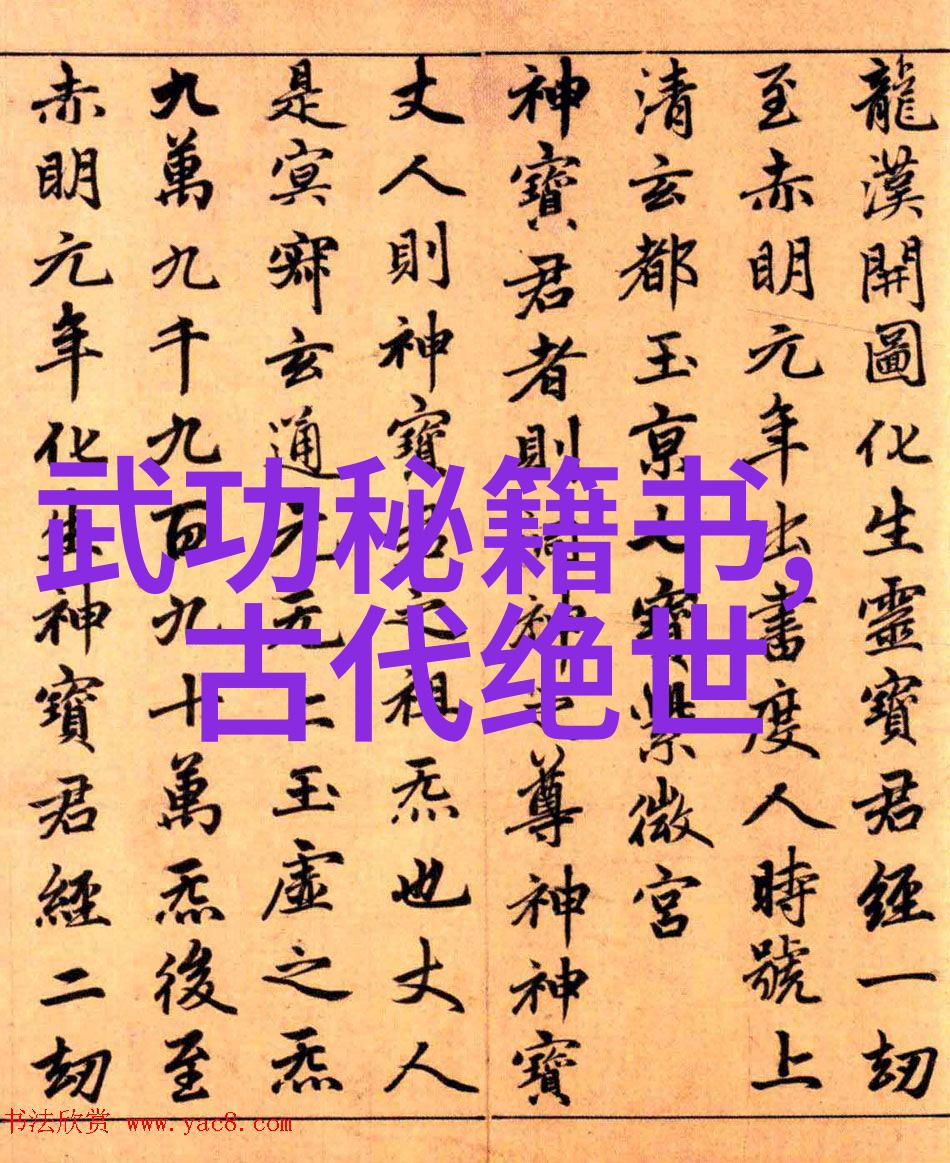 龍漢開圖化生靈寶君經一劫
至赤明元年出書度人時號上
清玄都玉京七寶紫微宮
神寶君者則洞神之尊神神寶
丈人則神寶君之祖炁也丈人
是冥寂玄通元无上玉虛之炁
九萬九千九百九十萬炁後至
赤明元年化生神寶君經二劫
武功秘籍书,
古代绝世
书法欣赏 www.yac8.com